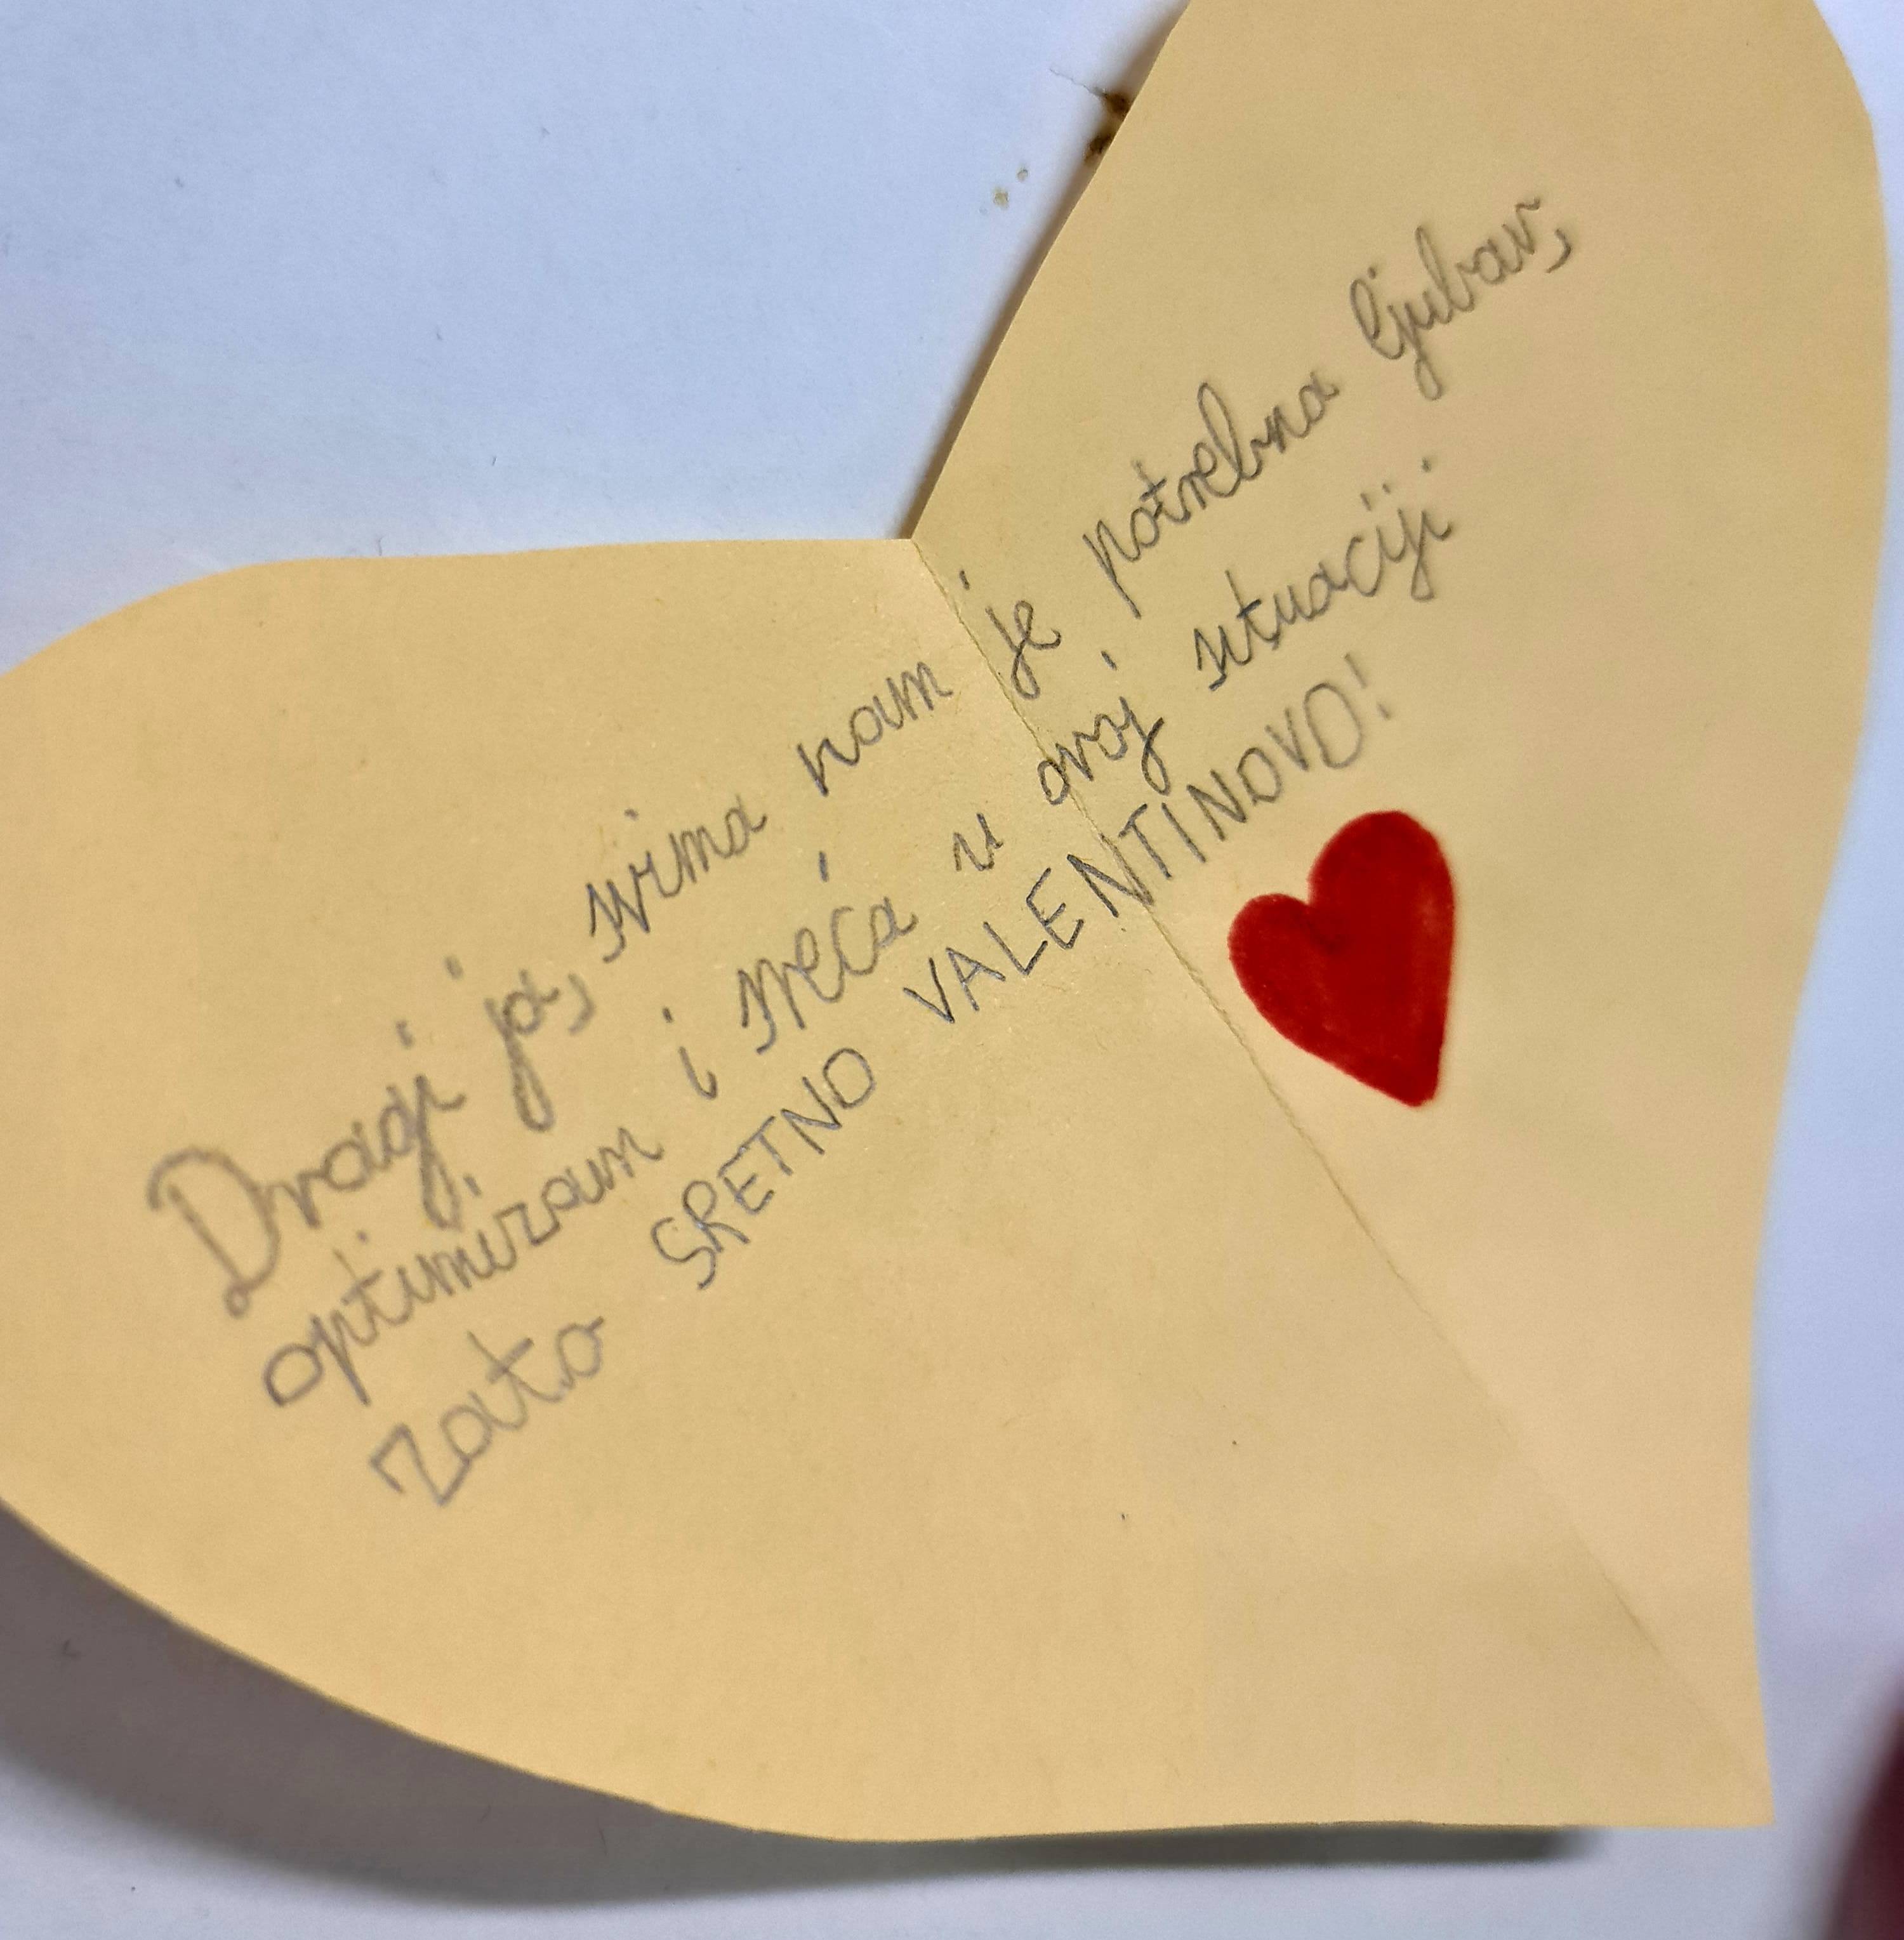 Dragi ja, svima nam je potrebna ljubav,
optimizam i sreća u ovoj situaciji
zato SRETNO VALENTINOVO!